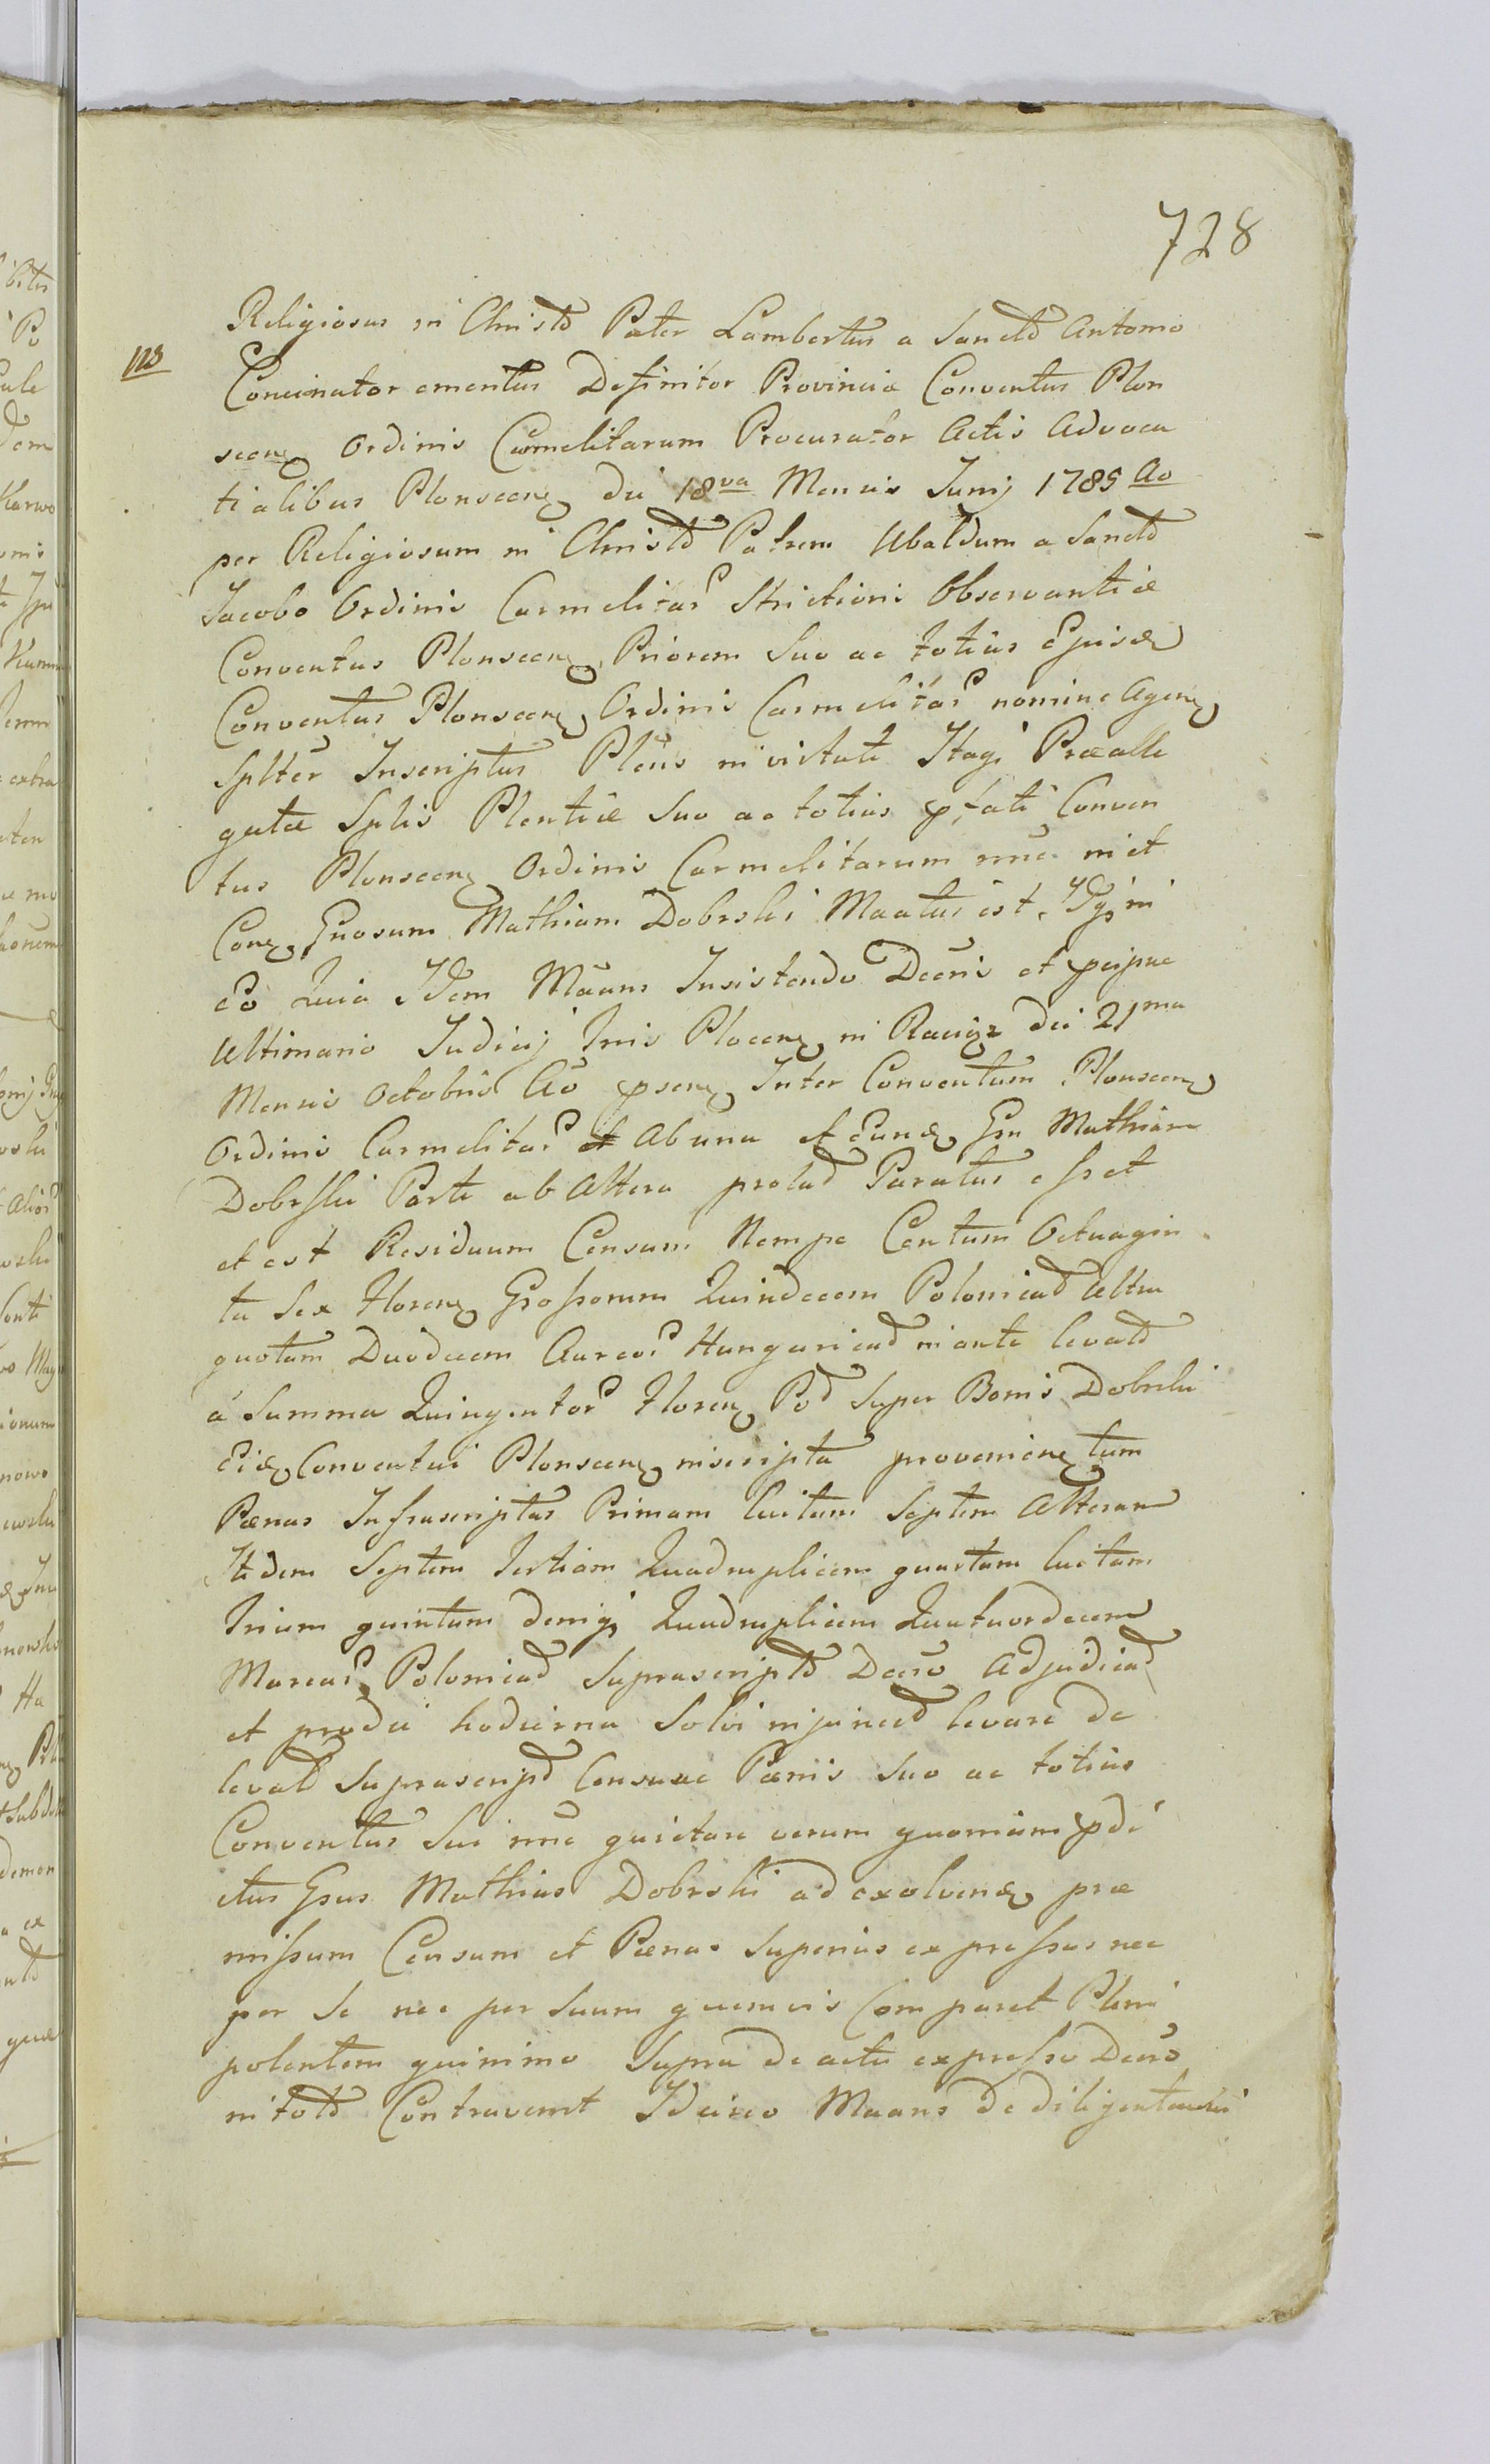 728
Religiosus in Christo Pater Lambertus a Sancto Antonio
123
Concionator emeritus Definitor Provinciæ Conventus Plon
scen Ordinis Carmelitarum Procurator Actis Advoca
tialibus Plonscen die 18va Mensis Junij 1785 Ao
per Religiosum in Christo Patrem Ubaldum a Sancto
Jacobo Ordinis Carmelitar Strictioris Observantiæ
Conventus Plonscen Priorem Suo ac totius Ejusd
Conventus Plonscen Ordinis Carmelitar nomine Agen
Splter Inscriptus Plens in virtute Itaq Præalle
gatæ Splis Plentiæ Suo ac totius pfati Conven
tus Plonscen Ordinis Carmelitarum nne in et
Con Gnosum Mathiam Dobrski Maatus est. Idq in
eo Quia Idem Maans Insistendo Decris et pcipue
Ultimario Judicij Tris Plocen in Raciąz die 21ma
Mensis Octobris Ao psen Inter Conventum Plonscen
Ordinis Carmelitar Ab una et eund Gn Mathiam
Dobrski Parte ab Altera prolat Paratus esset
et est Residuum Censum Nempe Centum Octuagin
ta Sex Floren Grossorum Quindecem Polonical Ultra
quotam Duodecem Aureor Hungarical in ante levat
a Summa Quingentor Floren Pol Super Bonis Dobrski
Eid Conventui Plonscen inscripta provenien tum
Pœnas Infrascriptas Primam luitam Septem Alteram
Itidem Septem Tertiam Quadruplicem quartam luitam
Trium quintam deniq Quadruplicem Quatuordecem
Marcar Polonical Suprascripto Decro Adjudicat
et pro die hodierna Solvi injunct levare de
levat Suprascript Censu ac Pœnis Suo ac totius
Conventus Sui nne quietare verum quoniam pdi
ctus Gsus Mathias Dobrski ad exolvend præ
missum Censum et Pœnas Superius expressas nec
per Se nec per Suum quemvis Comparet Pleni
potentem quinimo Supra de actu expresso Decro
in toto Contravenit Idcirco Maans de diligentia sui